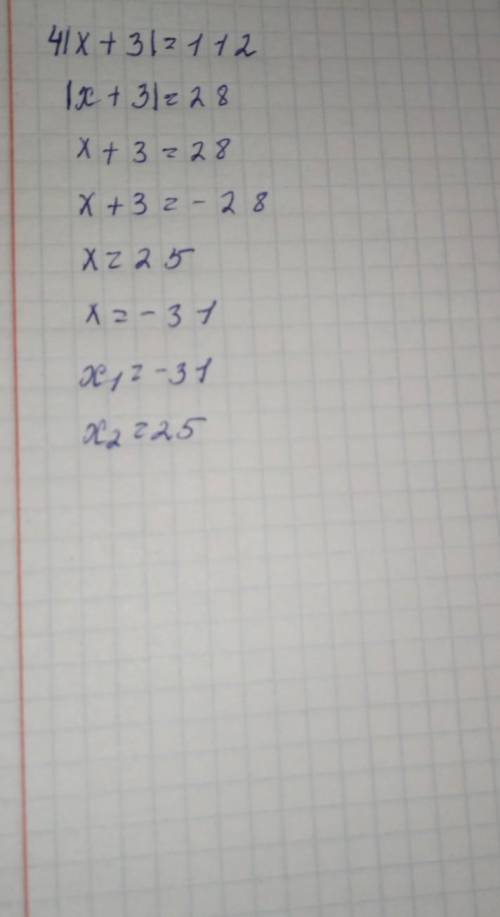 4|x + 3| = 112
|x + 3| = 28
x + 3 = 28
x + 3 = - 28
x = 25
x = - 31
x₁ = -31
x₂ = 25